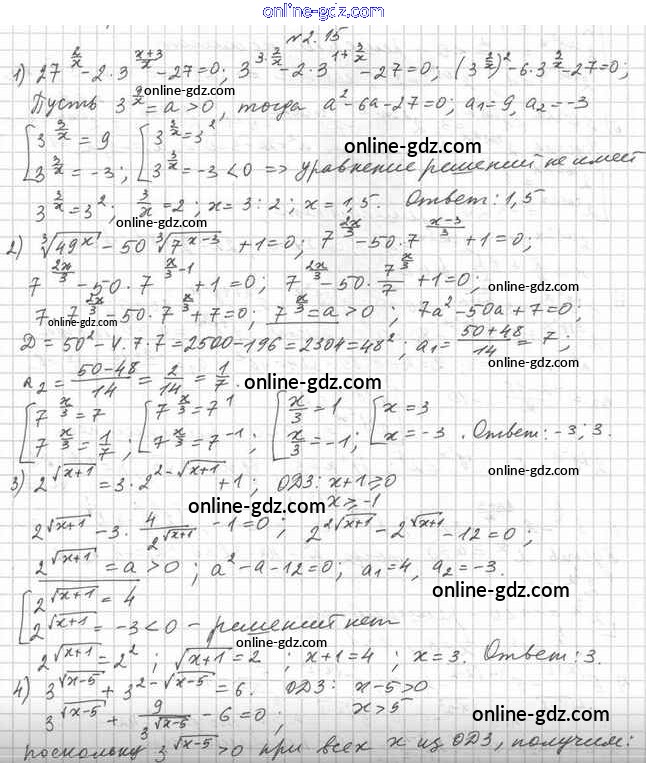 online-gdz.com
№2.15
1) 27^{2/x} - 2·3^{(x+3)/x} - 27 = 0; 3^{3·2/x} - 2·3^{1+3/x} - 27 = 0; (3^{3/x})² - 6·3^{3/x} - 27 = 0;
Пусть 3^{3/x} = a > 0, тогда a² - 6a - 27 = 0; a₁ = 9, a₂ = -3
online-gdz.com
[3^{3/x} = 9 [3^{3/x} = 3² online-gdz.com
3^{3/x} = -3; 3^{3/x} = -3 < 0 => уравнение решений не имеет
3^{3/x} = 3²; 3/x = 2; x = 3:2; x = 1,5. Ответ: 1,5
online-gdz.com
2) ∛(49^x) - 50 ∛(7^{x-3}) + 1 = 0; 7^{2x/3} - 50·7^{(x-3)/3} + 1 = 0;
7^{2x/3} - 50·7^{x/3-1} + 1 = 0; 7^{2x/3} - 50·7^{x/3}/7 + 1 = 0; online-gdz.com
7·7^{2x/3} - 50·7^{x/3} + 7 = 0; 7^{x/3} = a > 0; 7a² - 50a + 7 = 0;
online-gdz.com
D = 50² - 4·7·7 = 2500 - 196 = 2304 = 48²; a₁ = (50+48)/14 = 7;
a₂ = (50-48)/14 = 2/14 = 1/7. online-gdz.com
[7^{x/3} = 7 [7^{x/3} = 7¹ [x/3 = 1 [x = 3
7^{x/3} = 1/7; 7^{x/3} = 7^{-1}; x/3 = -1; x = -3. Ответ: -3; 3.
3) 2^{√(x+1)} = 3·2^{2-√(x+1)} + 1; ОДЗ: x+1 ≥ 0 online-gdz.com
online-gdz.com x ≥ -1
2^{√(x+1)} - 3·4/2^{√(x+1)} - 1 = 0; 2^{2√(x+1)} - 2^{√(x+1)} - 12 = 0;
2^{√(x+1)} = a > 0; a² - a - 12 = 0; a₁ = 4, a₂ = -3.
online-gdz.com
[2^{√(x+1)} = 4
2^{√(x+1)} = -3 < 0 - решений нет
online-gdz.com
2^{√(x+1)} = 2²; √(x+1) = 2; x+1 = 4; x = 3. Ответ: 3.
online-gdz.com
4) 3^{√(x-5)} + 3^{2-√(x-5)} = 6. ОДЗ: x-5 > 0
3^{√(x-5)} + 9/3^{√(x-5)} - 6 = 0; x > 5 online-gdz.com
поскольку 3^{√(x-5)} > 0 при всех x из ОДЗ, получим: